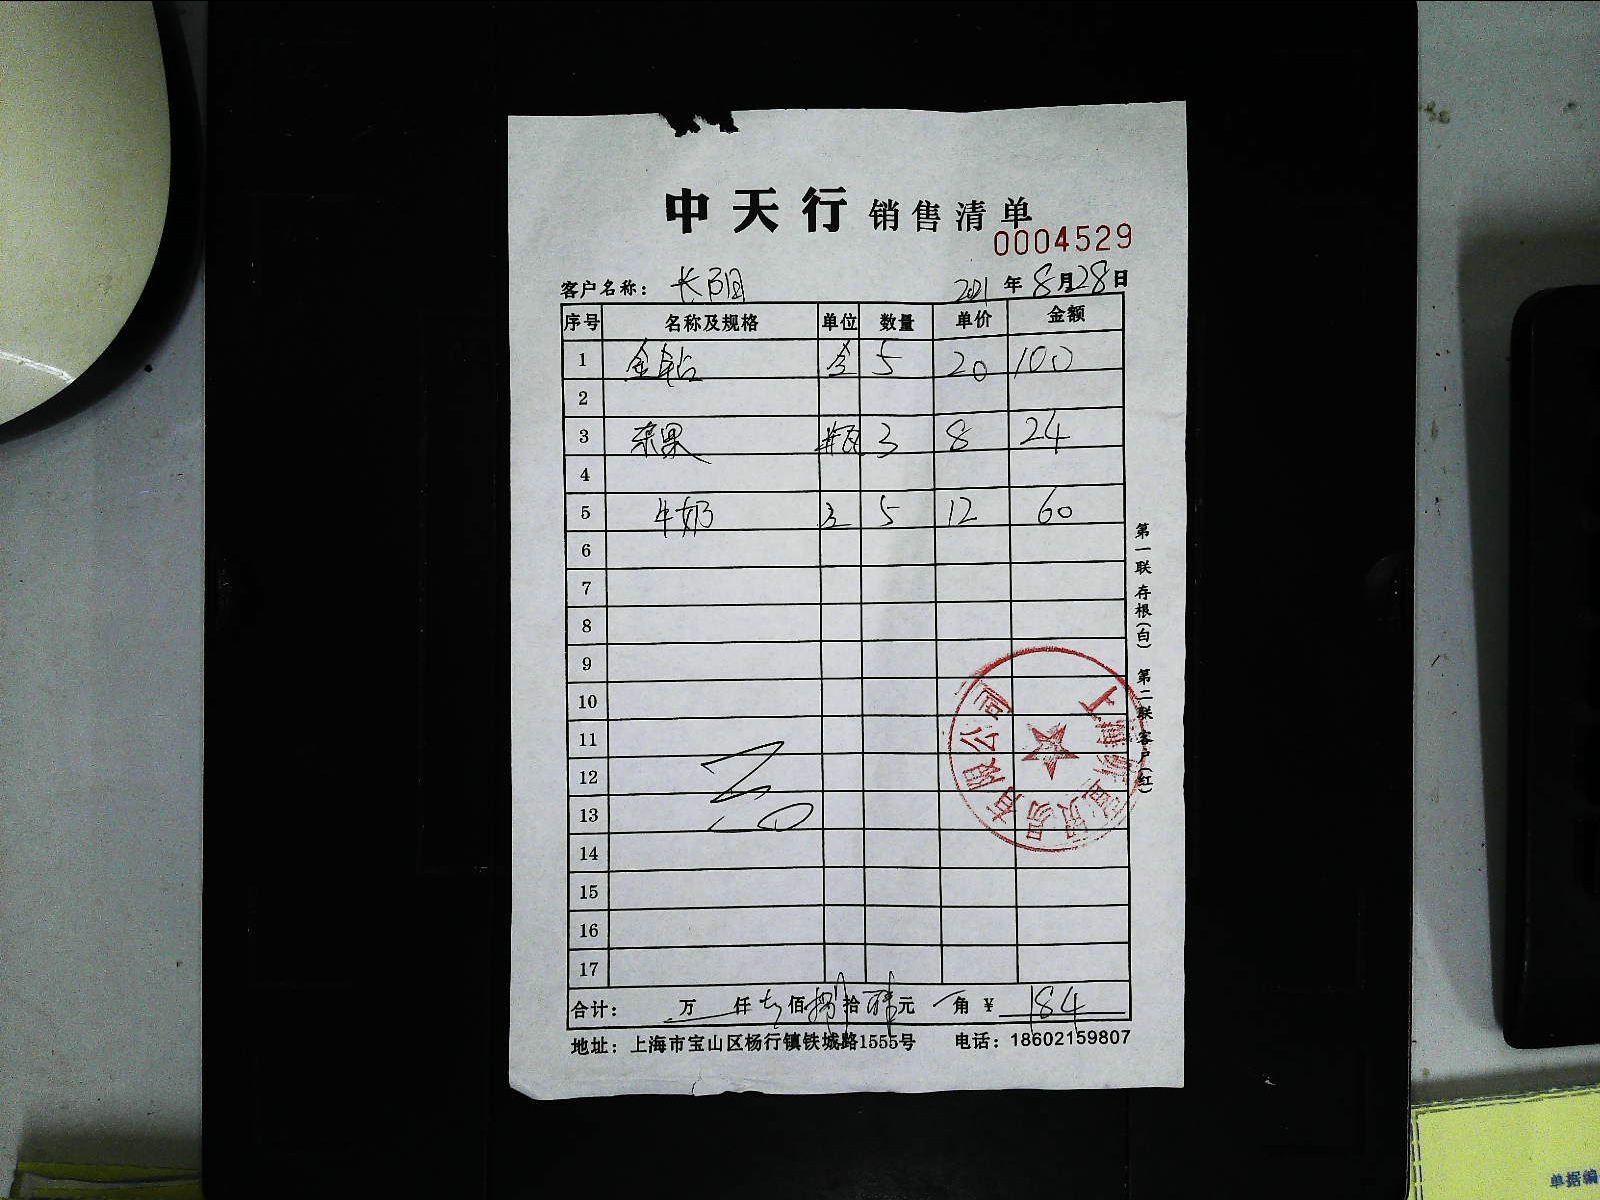 中天行 销售清单
0004529
客户名称： 长阳 2021 年 8 月 28 日
序号 名称及规格 单位 数量 单价 金额
1 金钻 5 20 100
2
3 果 瓶 3 8 24
4
5 牛奶 5 12 60
6
7
8
9
10
11
12
13
14
15
16
17
合计： 万 仟 佰 捌 拾 肆 元 角 ¥ 184
地址：上海市宝山区杨行镇铁城路1555号 电话：18602159807
第一联 存根（白） 第二联 客户（红）
贸易有限公司
单据编